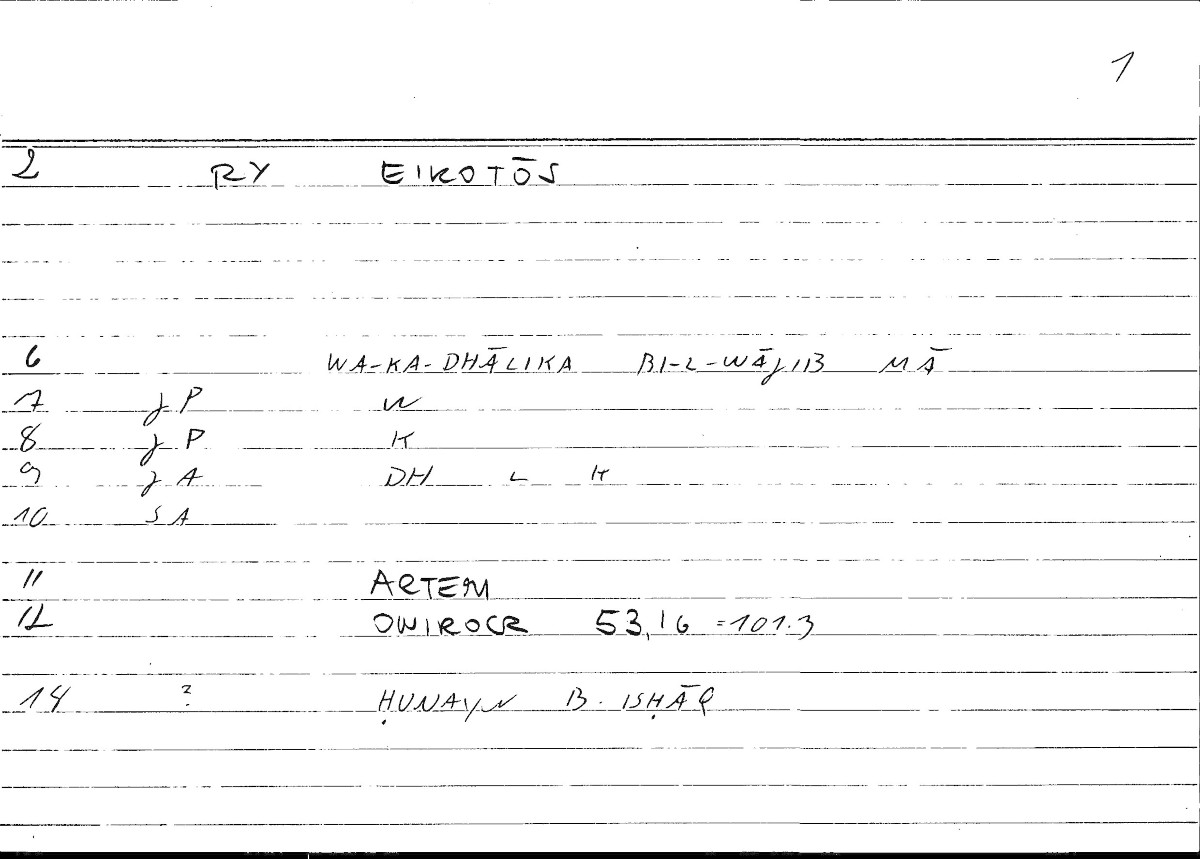 1
2 RY EIKOTŌS
6 WA-KA-DHĀLIKA BI-L-WĀJIB MĀ
7 JP W
8 JP K
9 JA DH L K
10 SA
11 ARTEM
12 ONIROCR 53,16 =101.3
14 ? ḤUNAYN B. ISḤĀQ